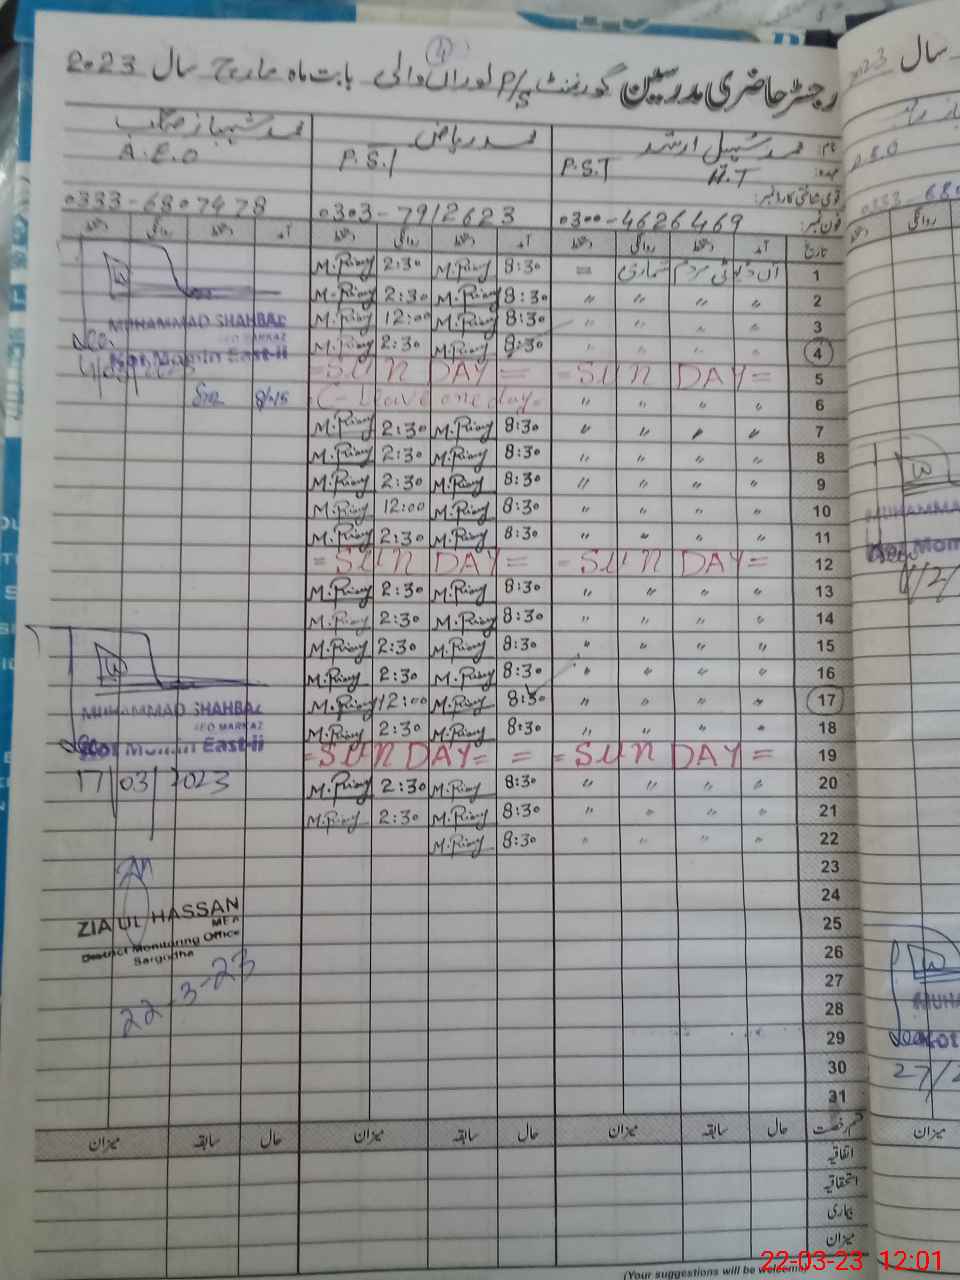 رجسٹر حاضری مدرسین گورنمنٹ P/S نوراں والی بابت ماہ مارچ سال 2023
نام: محمد سہیل ارشد محمد ریاض محمد شہباز صاحب
عہدہ: H.T P.S.T P.S.T A.E.O
قومی شناختی کارڈ نمبر:
فون نمبر: 0300-4626469 0303-7912623 0333-6807478
تاریخ آمد دستخط روانگی دستخط آمد دستخط روانگی دستخط آمد دستخط روانگی دستخط
1 آن ڈیوٹی مردم شماری = 8:30 M.Riaz 2:30 M.Riaz
2 〃 〃 〃 〃 8:30 M.Riaz 2:30 M.Riaz
3 〃 〃 〃 〃 8:30 M.Riaz 12:00 M.Riaz
4 〃 〃 〃 〃 8:30 M.Riaz 2:30 M.Riaz
5 = SUN DAY = = SUN DAY =
6 〃 〃 〃 〃 C- Leave one day
7 〃 〃 〃 〃 8:30 M.Riaz 2:30 M.Riaz
8 〃 〃 〃 〃 8:30 M.Riaz 2:30 M.Riaz
9 〃 〃 〃 〃 8:30 M.Riaz 2:30 M.Riaz
10 〃 〃 〃 〃 8:30 M.Riaz 12:00 M.Riaz
11 〃 〃 〃 〃 8:30 M.Riaz 2:30 M.Riaz
12 = SUN DAY = = SUN DAY =
13 〃 〃 〃 〃 8:30 M.Riaz 2:30 M.Riaz
14 〃 〃 〃 〃 8:30 M.Riaz 2:30 M.Riaz
15 〃 〃 〃 〃 8:30 M.Riaz 2:30 M.Riaz
16 〃 〃 〃 〃 8:30 M.Riaz 2:30 M.Riaz
17 〃 〃 〃 〃 8:30 M.Riaz 12:00 M.Riaz
18 〃 〃 〃 〃 8:30 M.Riaz 2:30 M.Riaz
19 = SUN DAY = = SUN DAY =
20 〃 〃 〃 〃 8:30 M.Riaz 2:30 M.Riaz
21 〃 〃 〃 〃 8:30 M.Riaz 2:30 M.Riaz
22 〃 〃 〃 〃 8:30 M.Riaz
23
24
25
26
27
28
29
30
31
MUHAMMAD SHAHBAZ
AEO MARKAZ
Kot Momin East-ii
MUHAMMAD SHAHBAZ
AEO MARKAZ
Kot Momin East-ii
17/03/2023
ZIA UL HASSAN
MEA
District Monitoring Office
Sargodha
22-3-23
قسم رخصت حال سابقہ میزان حال سابقہ میزان حال سابقہ میزان
اتفاقیہ
استحقاقیہ
بیماری
میزان
(Your suggestions will be welcome)
22-03-23 12:01